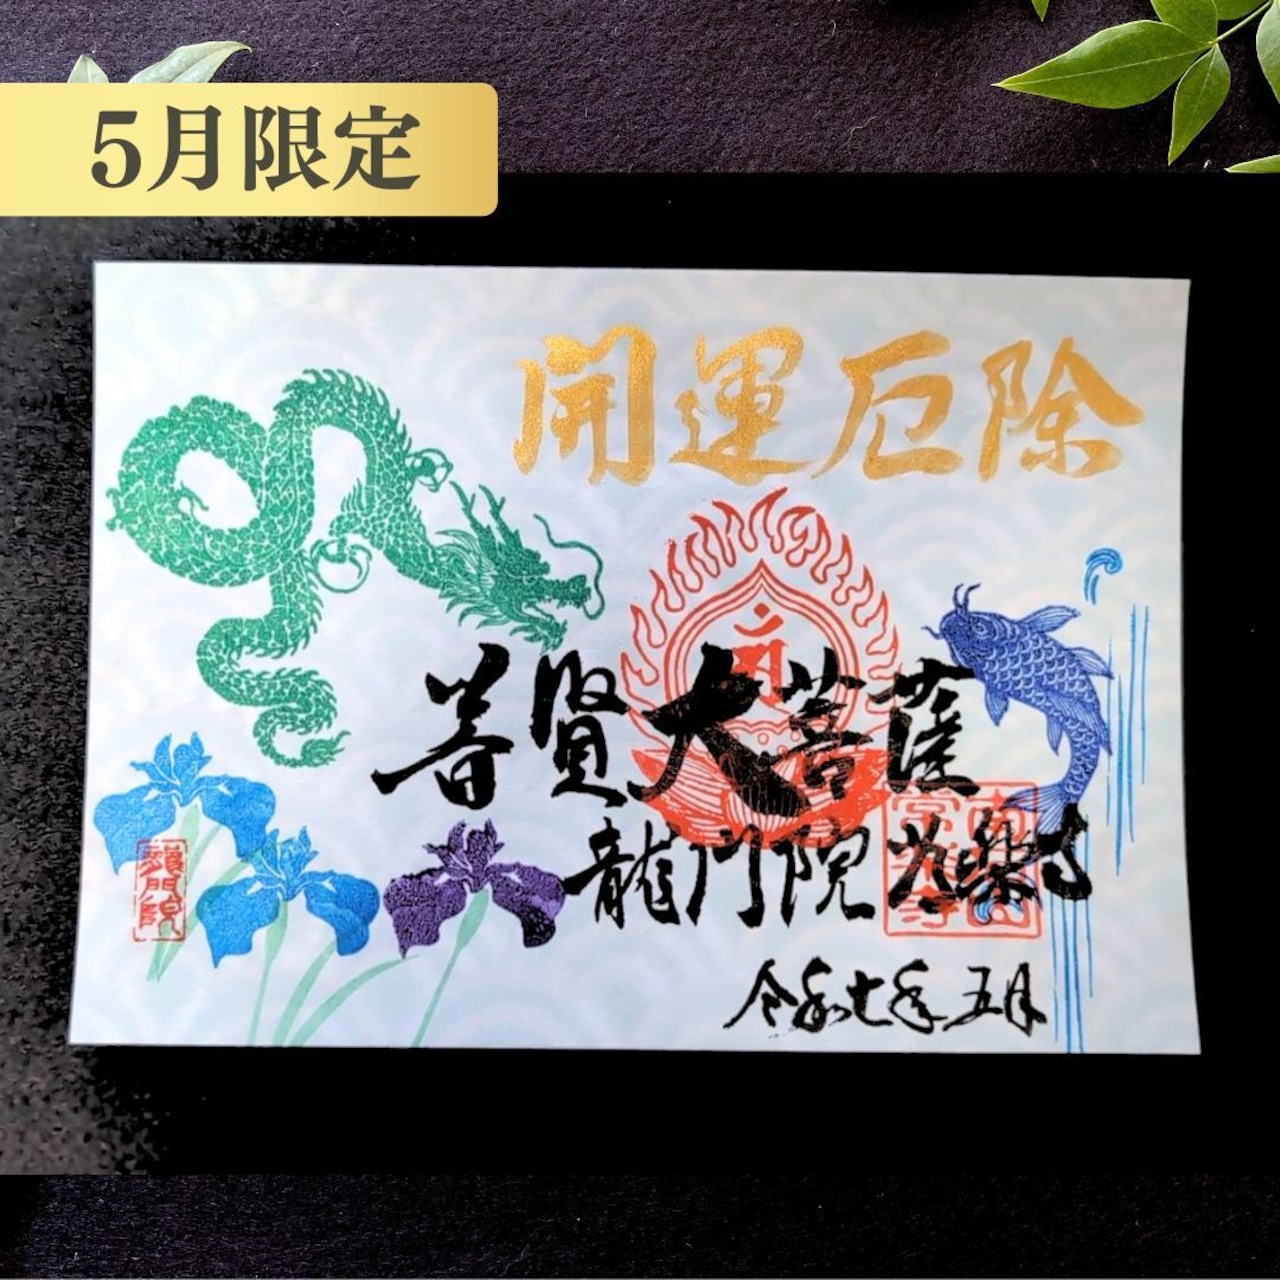 5月限定
開運厄除
普賢大菩薩
龍門院
龍門院
令和七年五月